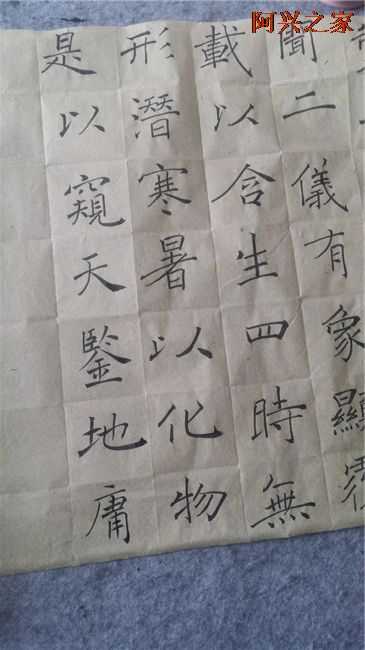 阿兴之家
聞二儀有象顯覆
載以含生四時無
形潛寒暑以化物
是以窺天鑒地庸